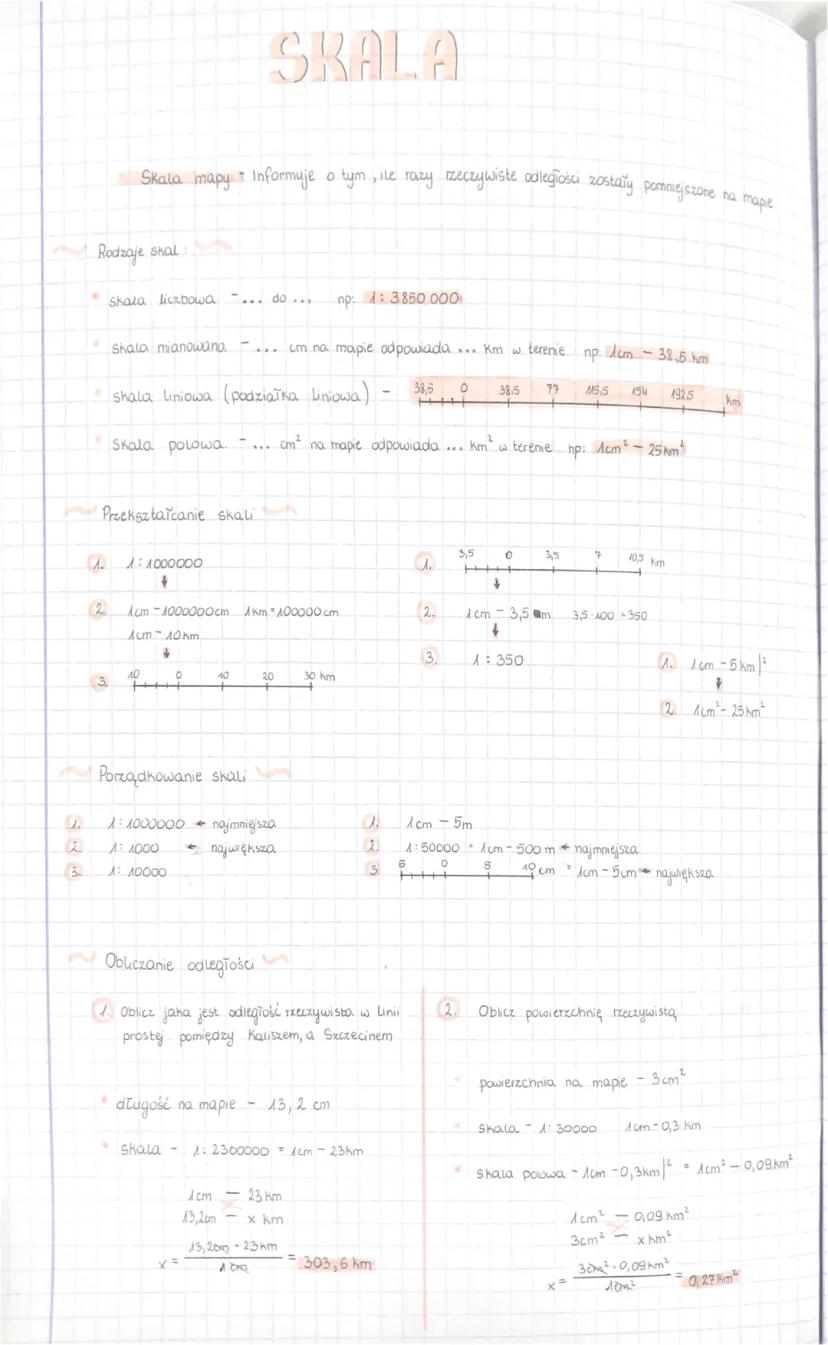 SKALA
Skala mapy: Informuje o tym, ile razy rzeczywiste odległości zostały pomniejszone na mapie
Rodzaje skal:
skala liczbowa - ... do ... np: 1:3850 000
skala mianowana - ... cm na mapie odpowiada ... km w terenie np: 1cm - 38,5 km
skala liniowa (podziałka liniowa) - 38,5 0 38,5 77 115,5 154 192,5 km
skala polowa - ... cm² na mapie odpowiada ... km² w terenie np: 1cm² - 25km²
Przekształcanie skali
1. 1:1000000
↓
2. 1cm - 1000000cm 1km = 100000cm
1cm - 10km
↓
3. 10 0 10 20 30 km
1. 3,5 0 3,5 7 10,5 km
↓
2. 1cm - 3,5 m 3,5·100 = 350
↓
3. 1 : 350
1. 1cm - 5km |²
↓
2. 1cm² - 25km²
Porządkowanie skali
1. 1:1000000 ← najmniejsza
2. 1:1000 ← największa
3. 1:10000
1. 1cm - 5m
2. 1:50000 = 1cm - 500 m ← najmniejsza
3. 5 0 5 10 cm = 1cm - 5cm ← największa
Obliczanie odległości
1. Oblicz jaka jest odległość rzeczywista w linii
prostej pomiędzy Kaliszem, a Szczecinem
długość na mapie - 13,2 cm
skala - 1:2300000 = 1cm - 23km
1cm - 23km
13,2cm - x km
x = 13,2cm · 23km / 1cm = 303,6 km
2. Oblicz powierzchnię rzeczywistą
powierzchnia na mapie - 3cm²
skala - 1:30000 1cm - 0,3 km
skala polowa - 1cm - 0,3km |² = 1cm² - 0,09km²
1cm² - 0,09 km²
3cm² - x km²
x = 3cm² · 0,09km² / 1cm² = 0,27km²